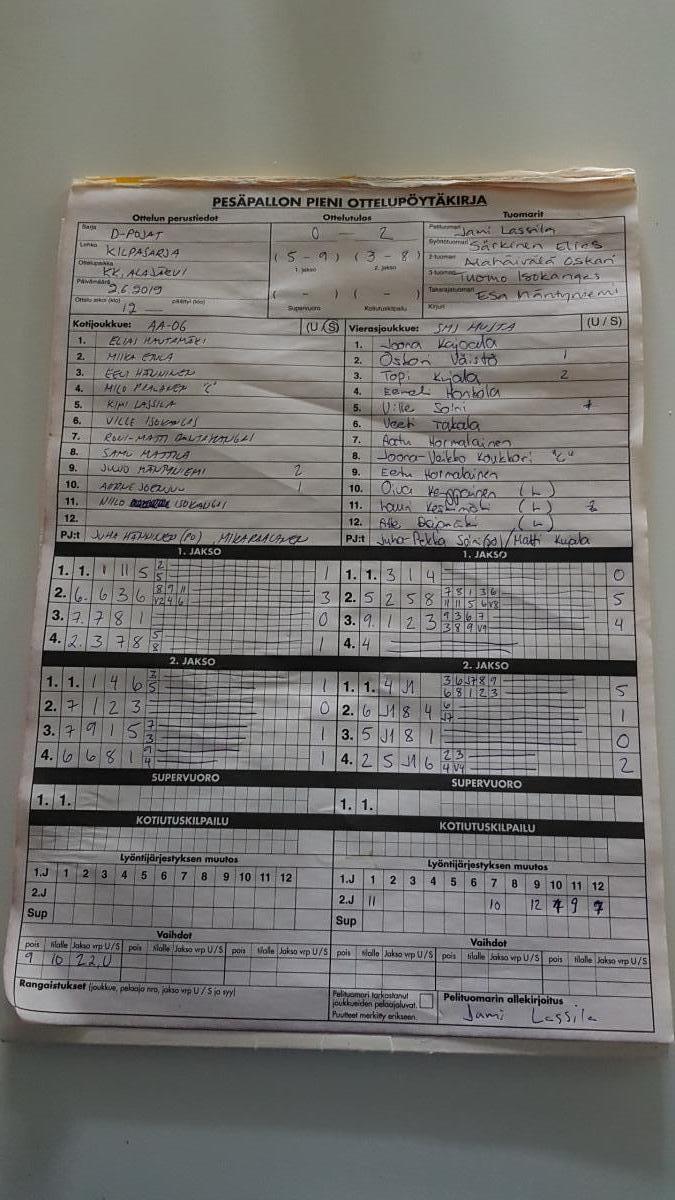 PESÄPALLON PIENI OTTELUPÖYTÄKIRJA
Ottelun perustiedot Ottelutulos Tuomarit
Sarja D-POJAT 0 — 2 Pelituomari Jami Lassila
Lohko KILPASARJA (5 - 9) (3 - 8) Syöttötuomari Särkinen Elias
1. jakso 2. jakso
Ottelupaikka KK, ALAJÄRVI 2-tuomari Mahaivälä Oskari
Päivämäärä 2.6.2019 ( - ) ( - ) 3-tuomari Tuomo Isokangas
Ottelu alkoi (klo) 12 päättyi (klo) Supervuoro Kotiutuskilpailu Takarajatuomari Esa Mäntyniemi
Kirjuri
Kotijoukkue: AA-06 (U / S) Vierasjoukkue: SMJ MUSTA (U / S)
1. ELIAS HAUTAMÄKI 1. Joona
2. MIIKA 2. Oskari Väistö 1
3. EELI HÄNNINEN 3. Topi Kujala 2
4. MILO "C" 4. Eemeli Honkola
5. KIMI LASSILA 5. Ville Soini
6. VILLE ISOKANGAS 6. Veeti Takala
7. RONI-MATTI 7. Aatu Hormalainen
8. SAMU MATTILA 8. Joona-Veikko "C"
9. JUHO MÄNTYNIEMI 2 9. Eetu Hormalainen
10. 1 10. Oiva (L)
11. NIILO ISOKANGAS 11. Lauri (L)
12. 12. (L)
PJ:t JUHA HÄNNINEN (PO), MIKA PJ:t Juha-Pekka Soini (PO) / Matti Kujala
1. JAKSO 1. JAKSO
1. 1. 1 11 5 2 5 1 1. 1. 3 1 4 0
2. 6. 6 3 6 8 9 11 V2 4 6 3 2. 5 2 5 8 7 8 1 3 6 11 11 5 6 V8 5
3. 7. 7 8 1 0 3. 9. 1 2 3 9 3 6 7 3 8 9 V9 4
4. 2. 3 7 8 5 8 1 4. 4
2. JAKSO 2. JAKSO
1. 1. 1 4 6 3 5 1 1. 1. 4 J1 3 6 J7 8 9 6 8 1 2 3 5
2. 7 1 2 3 0 2. 6 J1 8 4 6 J7 1
3. 7 9 1 5 7 3 1 3. 5 J1 8 1 0
4. 6 6 8 1 9 4 1 4. 2 5 J1 6 2 3 4 V4 2
SUPERVUORO SUPERVUORO
1. 1. 1. 1.
KOTIUTUSKILPAILU KOTIUTUSKILPAILU
Lyöntijärjestyksen muutos Lyöntijärjestyksen muutos
1.J 1 2 3 4 5 6 7 8 9 10 11 12 1.J 1 2 3 4 5 6 7 8 9 10 11 12
2.J 2.J 11 10 12 9
Sup Sup
Vaihdot Vaihdot
pois tilalle Jakso vrp U/S pois tilalle Jakso vrp U/S pois tilalle Jakso vrp U/S pois tilalle Jakso vrp U/S pois tilalle Jakso vrp U/S pois tilalle Jakso vrp U/S
9 10 2 2. U
Rangaistukset (joukkue, pelaaja nro, jakso vrp U / S ja syy) Pelituomari tarkastanut Pelituomarin allekirjoitus
joukkueiden pelaajaluvat.
Puutteet merkitty erikseen. Jami Lassila